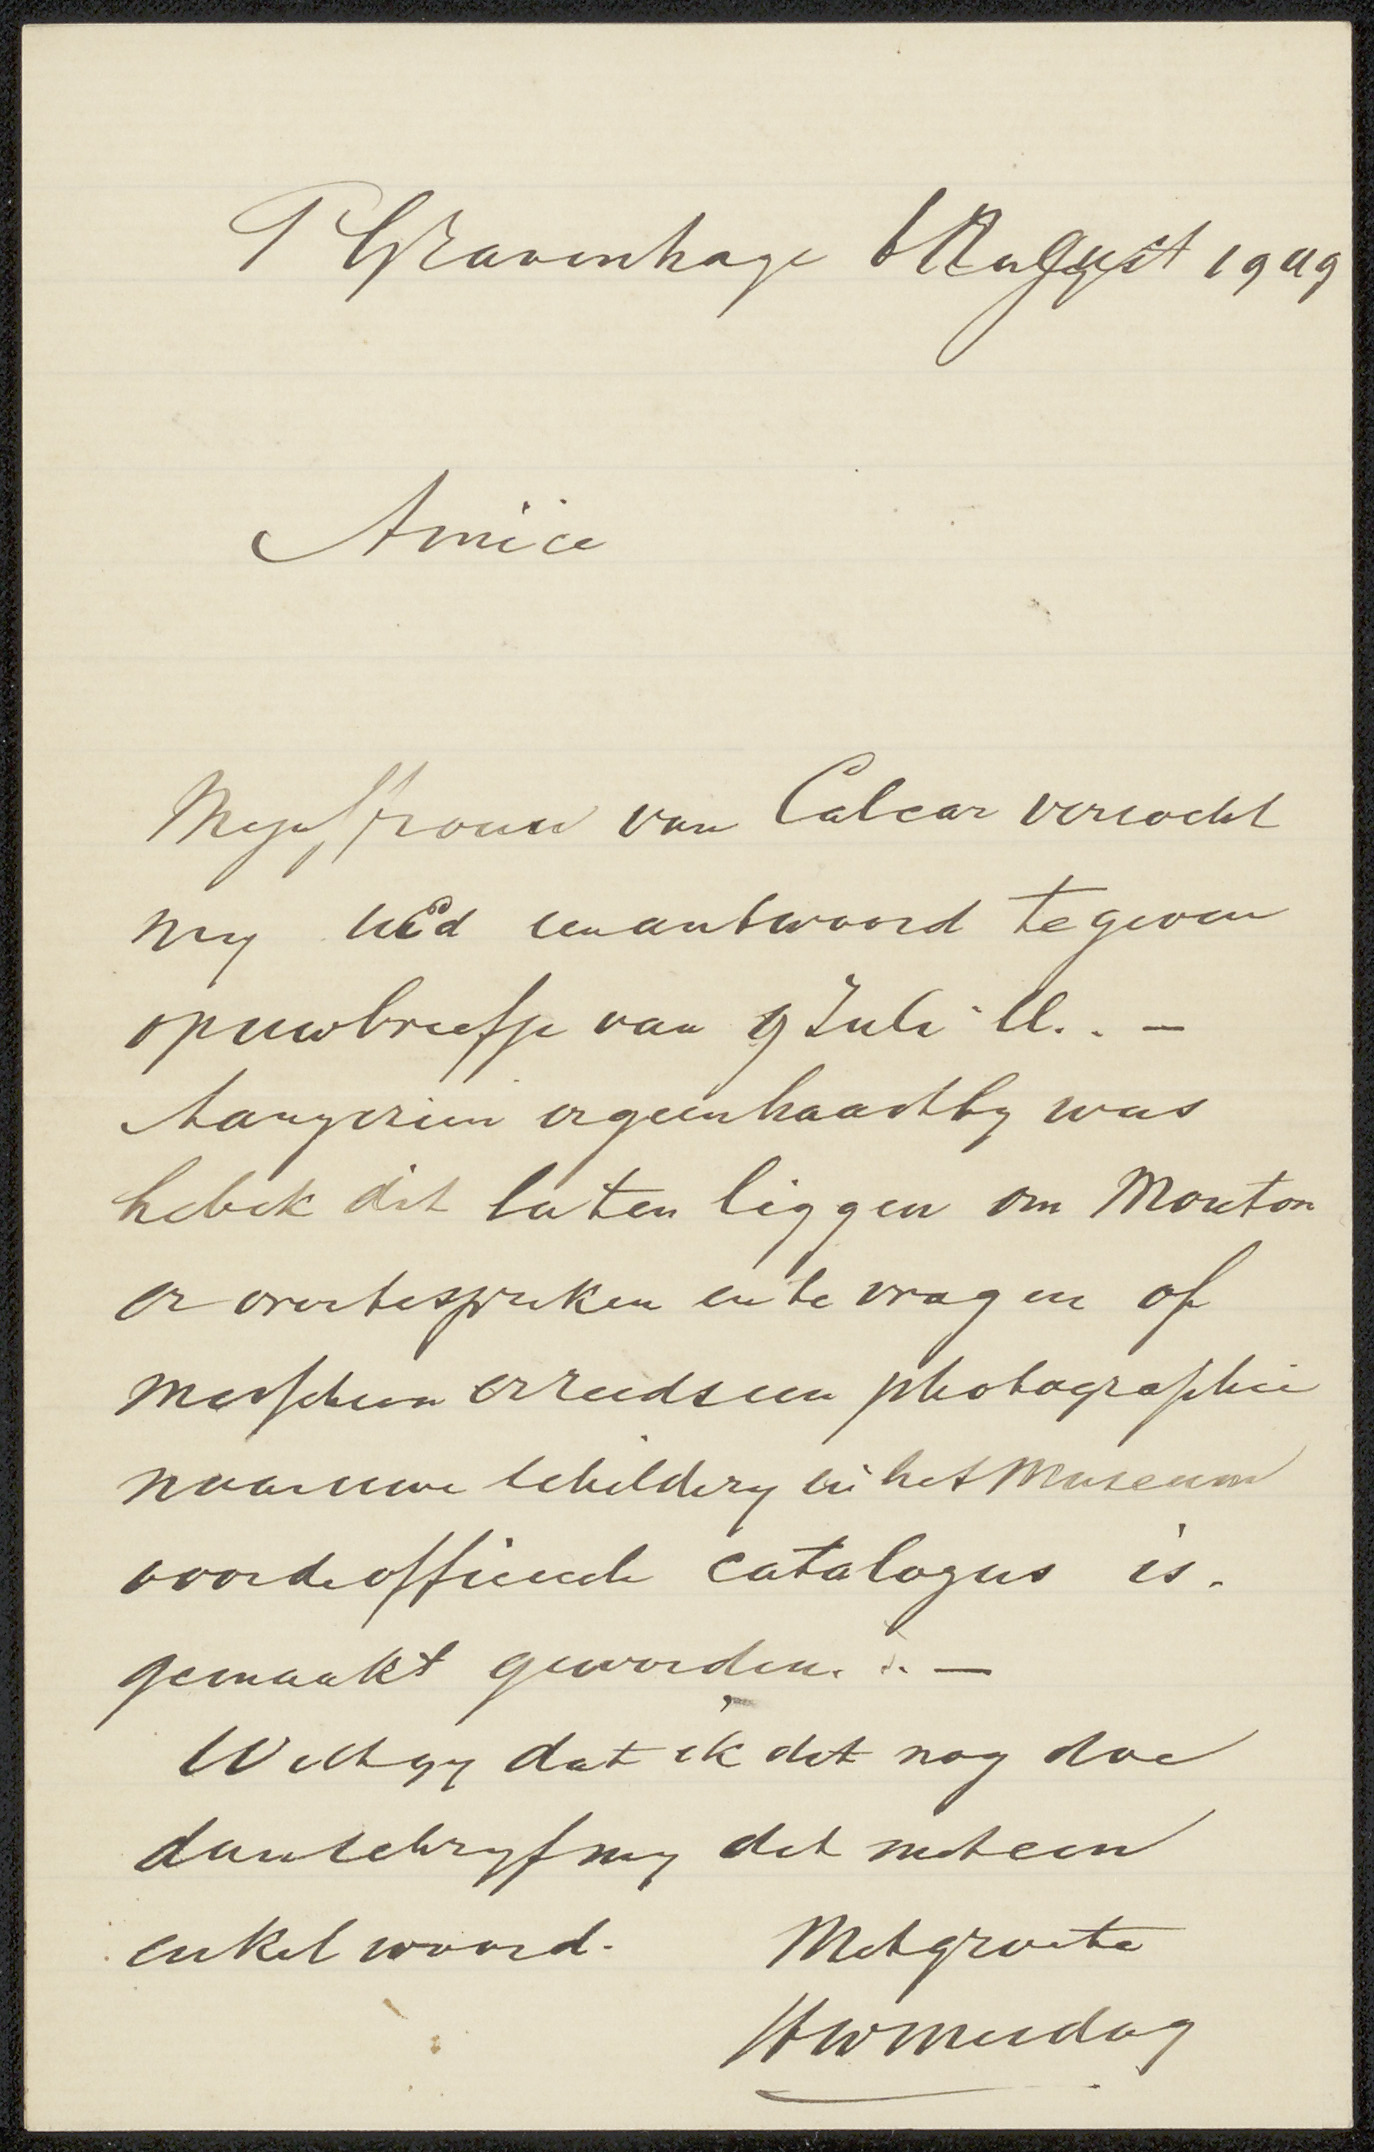 'S Gravenhage 6 August 1909
Amice
Mejuffrouw van Calcar verzocht
my UEd een antwoord te geven
op uw briefje van 9 Juli ll. . —
Aangezien er geen haast by was
heb ik dit laten liggen om Mouton
er over te spreken en te vragen of
misschien er reeds een photographie
naar uwe schildery in het Museum
voor de officieele catalogus is.
gemaakt geworden. . —
Wilt gy dat ik dit nog doe
dan schryf my dit met een
enkel woord. Met groete
HW Mesdag